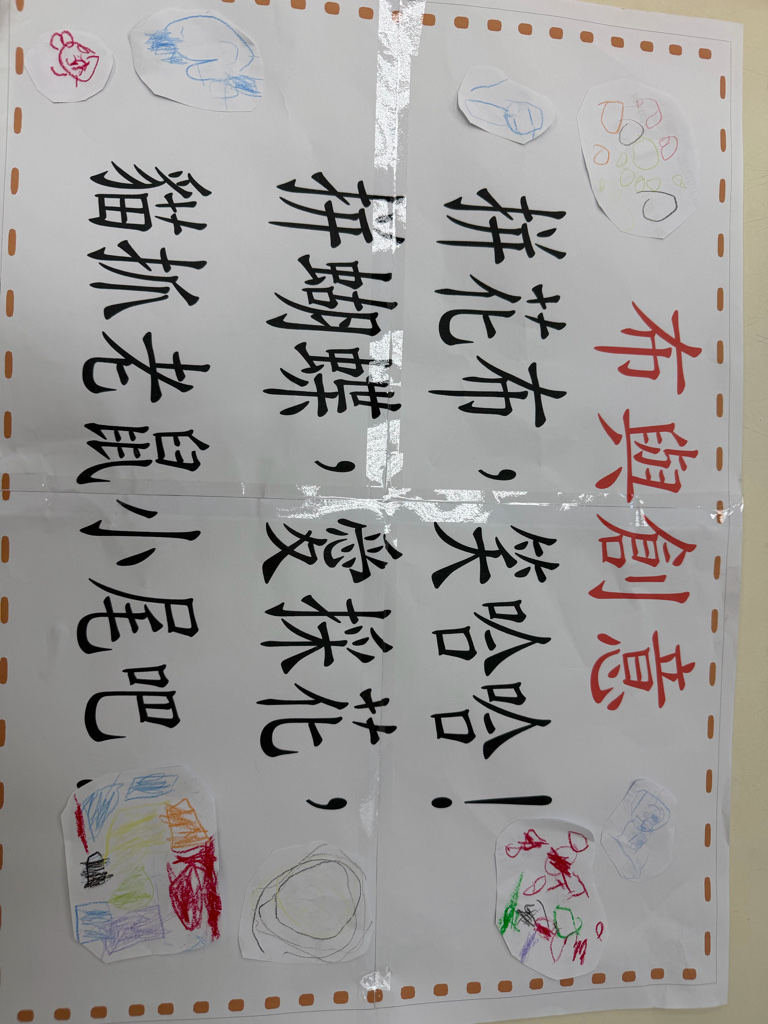 布與創意
拼花布,笑哈哈!
拼蝴蝶,愛採花,
貓抓老鼠小尾吧